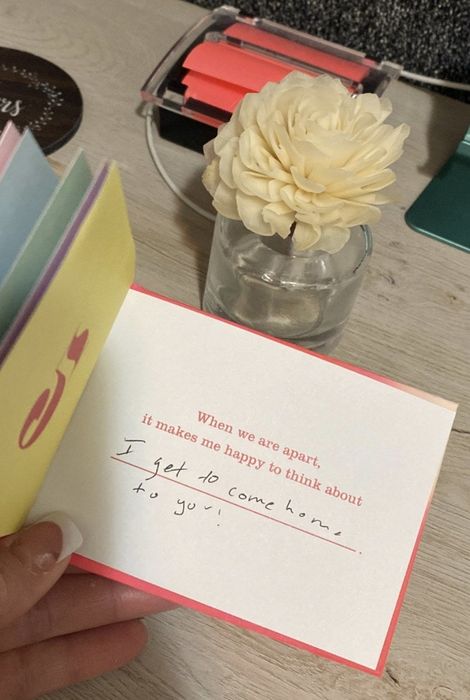 When we are apart,
it makes me happy to think about
I get to come home
to you!